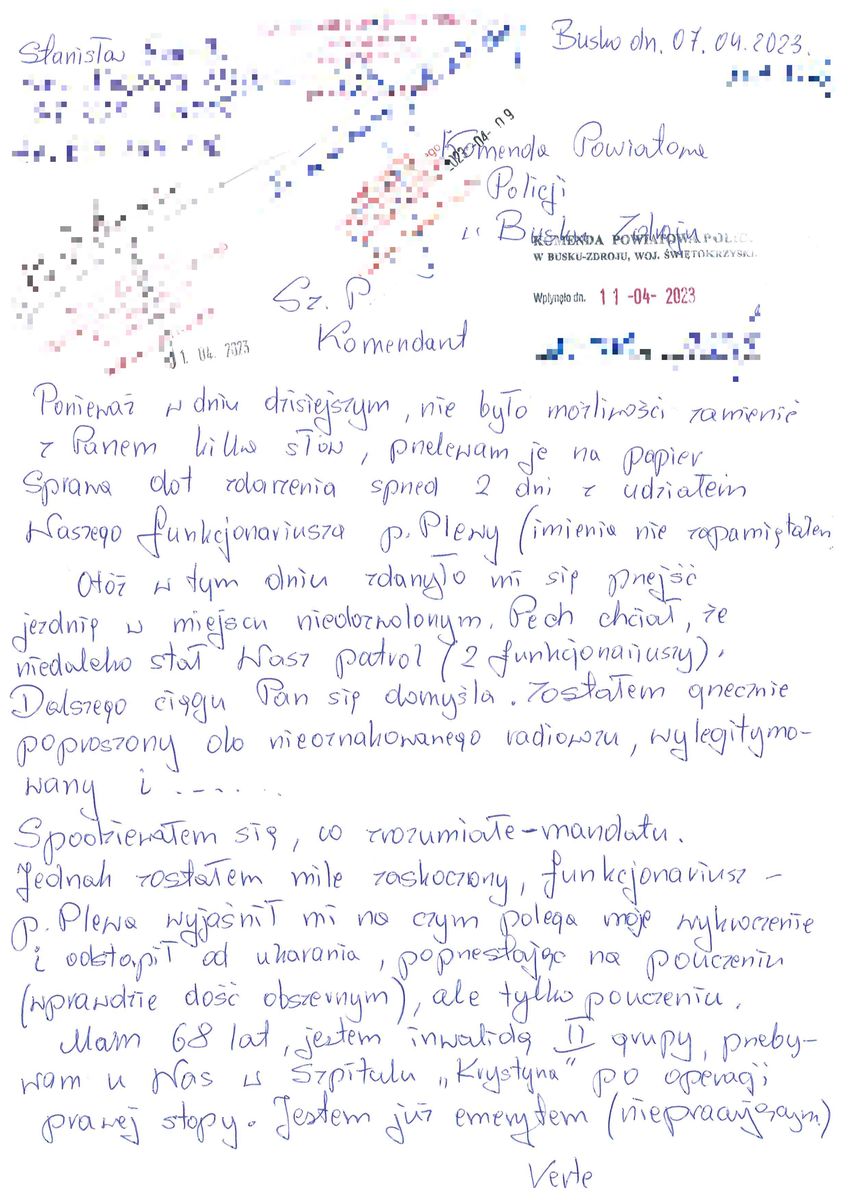 Stanisław
Busko dn. 07.04.2023.
Komenda Powiatowa
Policji
w Busku Zdroju
KOMENDA POWIATOWA POLIC
W BUSKU-ZDROJU, WOJ. ŚWIĘTOKRZYSKI
Wpłynęło dn. 11 -04- 2023
023 -04- 09
1. 04. 2023
Sz. P.
Komendant
Ponieważ w dniu dzisiejszym, nie było możliwości zamienić
z Panem kilku słów, przelewam je na papier
Sprawa dot zdarzenia sprzed 2 dni z udziałem
Waszego funkcjonariusza p. Plewy (imienia nie zapamiętałem
Otóż w tym dniu zdarzyło mi się przejść
jezdnię w miejscu niedozwolonym. Pech chciał, że
niedaleko stał Wasz patrol (2 funkcjonariuszy).
Dalszego ciągu Pan się domyśla. Zostałem grzecznie
poproszony do nieoznakowanego radiowozu, wylegitymo-
wany i .......
Spodziewałem się, co zrozumiałe - mandatu.
Jednak zostałem mile zaskoczony, funkcjonariusz -
p. Plewa wyjaśnił mi na czym polega moje wykroczenie
i odstąpił od ukarania, poprzestając na pouczeniu
(wprawdzie dość obszernym), ale tylko pouczeniu.
Mam 68 lat, jestem inwalidą II grupy, przeby-
wam u Was w Szpitalu „Krystyna" po operacji
prawej stopy. Jestem już emerytem (niepracującym)
Verte